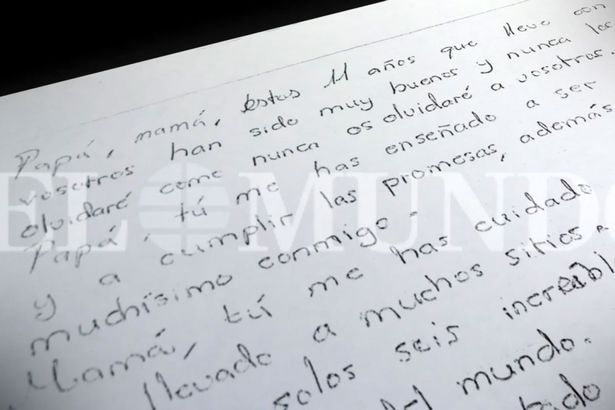 Papá, mamá, éstos 11 años que llevo con
vosotros han sido muy buenos y nunca los
olvidaré como nunca os olvidaré a vosotros.
Papá, tú me has enseñado a ser
y a cumplir las promesas, además
muchísimo conmigo.
Mamá, tú me has cuidado
llevado a muchos sitios
solos seis increíbl
del mundo.
EL MUNDO